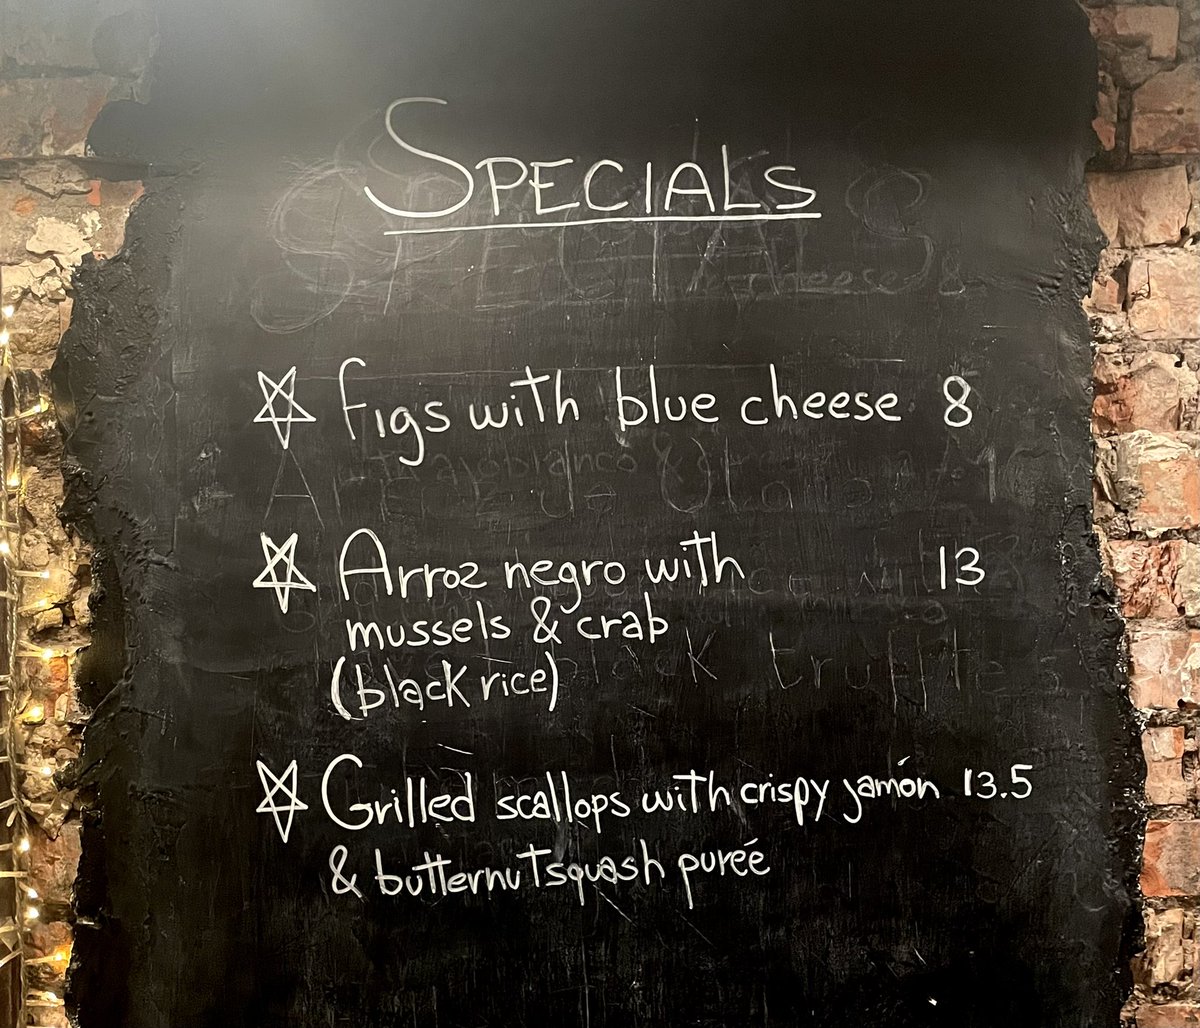 SPECIALS
Figs with blue cheese 8
Arroz negro with 13
mussels & crab
(black rice)
Grilled scallops with crispy jamón 13.5
& butternut squash pureé